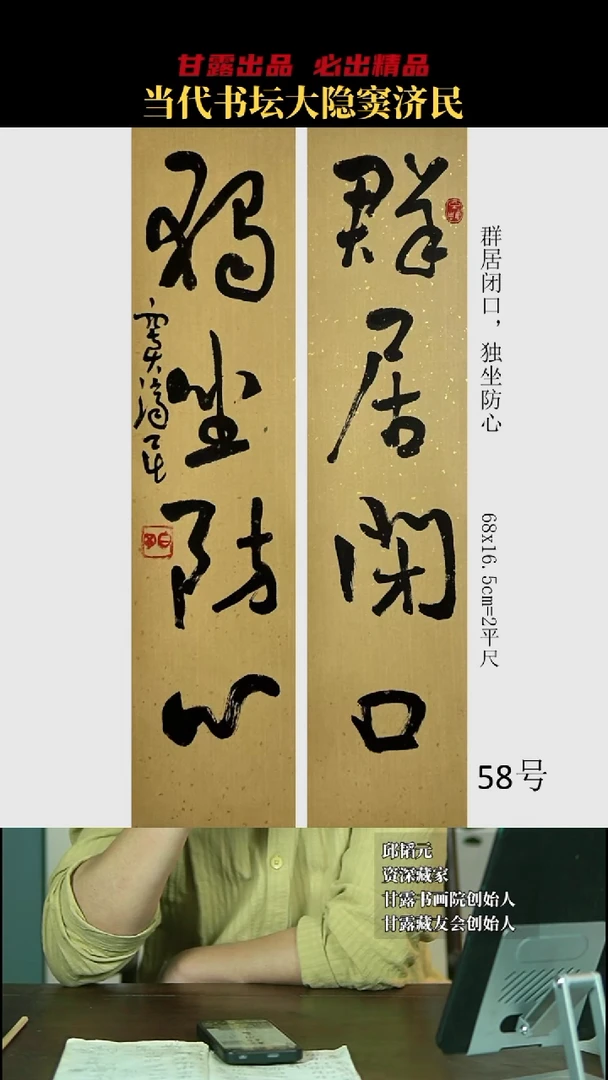 甘露出品 必出精品
当代书坛大隐窦济民
群居閉口
獨坐防心
窦濟民
群居闭口，独坐防心
68x16.5cm=2平尺
58号
邱韬元
资深藏家
甘露书画院创始人
甘露藏友会创始人